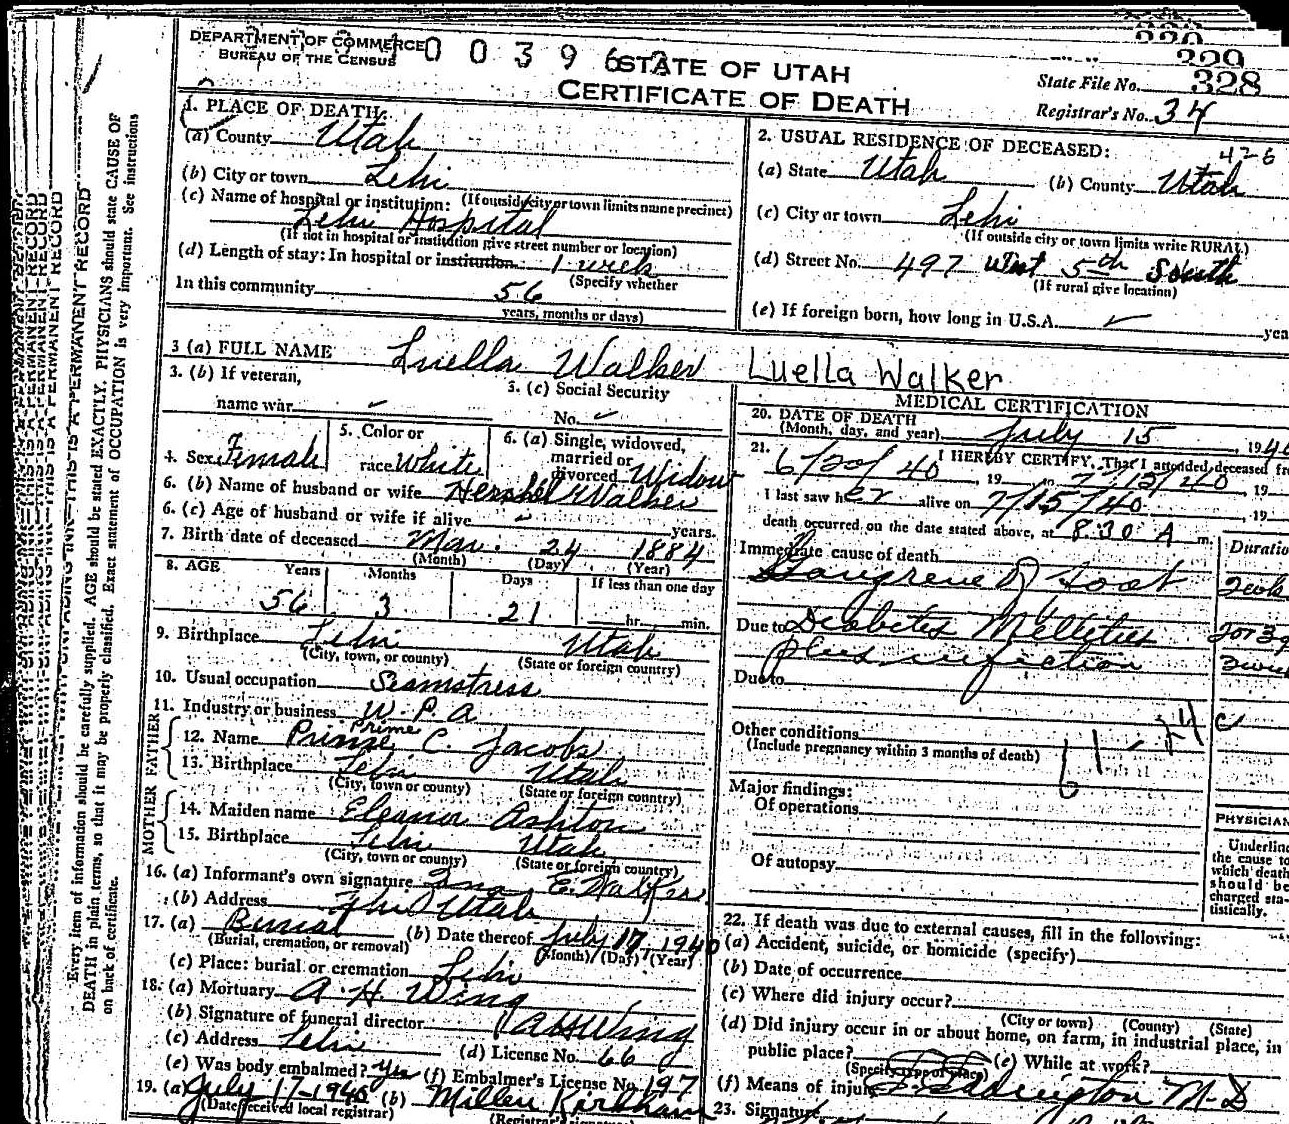 DEPARTMENT OF COMMERCE
BUREAU OF THE CENSUS
0 0 3 9 6
STATE OF UTAH
CERTIFICATE OF DEATH
329
State File No. 328
Registrar's No. 34
1. PLACE OF DEATH:
(a) County Utah
(b) City or town Lehi
(If outside city or town limits name precinct)
(c) Name of hospital or institution:
Lehi Hospital
(If not in hospital or institution give street number or location)
(d) Length of stay: In hospital or institution 1 week
(Specify whether
In this community 56
years, months or days)
2. USUAL RESIDENCE OF DECEASED:
42-6
(a) State Utah (b) County Utah
(c) City or town Lehi
(If outside city or town limits write RURAL)
(d) Street No. 497 West 5th South
(If rural give location)
(e) If foreign born, how long in U.S.A.
3 (a) FULL NAME Luella Walker Luella Walker
3. (b) If veteran,
name war
3. (c) Social Security
No.
4. Sex Female
5. Color or
race White
6. (a) Single, widowed,
married or
divorced Widow
6. (b) Name of husband or wife Hershel Walker
6. (c) Age of husband or wife if alive years.
7. Birth date of deceased Mar. 24 1884
(Month) (Day) (Year)
8. AGE Years Months Days If less than one day
56 3 21 hr. min.
9. Birthplace Lehi Utah
(City, town, or county) (State or foreign country)
10. Usual occupation Seamstress
11. Industry or business W.P.A
FATHER
12. Name Prime C. Jacobs
Prime
13. Birthplace Lehi Utah
(City, town or county) (State or foreign country)
MOTHER
14. Maiden name Eleanor Ashton
15. Birthplace Lehi Utah
(City, town or county) (State or foreign country)
16. (a) Informant's own signature E. Walker
(b) Address Lehi Utah
17. (a) Burial (b) Date thereof July 17 1940
(Burial, cremation, or removal) (Month) (Day) (Year)
(c) Place: burial or cremation Lehi
18. (a) Mortuary A. H. Wing
(b) Signature of funeral director A H Wing
(c) Address Lehi (d) License No. 66
(e) Was body embalmed? Yes (f) Embalmer's License No. 197
19. (a) July 17-1940 (b) Millen Kirkham
(Date received local registrar) (Registrar's signature)
MEDICAL CERTIFICATION
20. DATE OF DEATH
(Month, day, and year) July 15, 1940
21. I HEREBY CERTIFY, That I attended deceased fr
6/20/40, 19 to 7/15/40, 19
I last saw her alive on 7/15/40, 19
death occurred on the date stated above, at 8:30 A m.
Immediate cause of death Duratio
Gangrene of foot
Due to Diabetes Mellitus
plus infection
Due to
Other conditions
(Include pregnancy within 3 months of death)
61
Major findings:
Of operations
Of autopsy
PHYSICIAN
Underline
the cause to
which death
should be
charged sta-
tistically.
22. If death was due to external causes, fill in the following:
(a) Accident, suicide, or homicide (specify)
(b) Date of occurrence
(c) Where did injury occur?
(City or town) (County) (State)
(d) Did injury occur in or about home, on farm, in industrial place, in
public place? (e) While at work?
(Specify type of place)
(f) Means of injury
Eddington M-D
23. Signature
Every item of information should be carefully supplied. AGE should be stated EXACTLY. PHYSICIANS should state CAUSE OF
DEATH in plain terms, so that it may be properly classified. Exact statement of OCCUPATION is very important. See instructions
on back of certificate.
THIS IS A PERMANENT RECORD